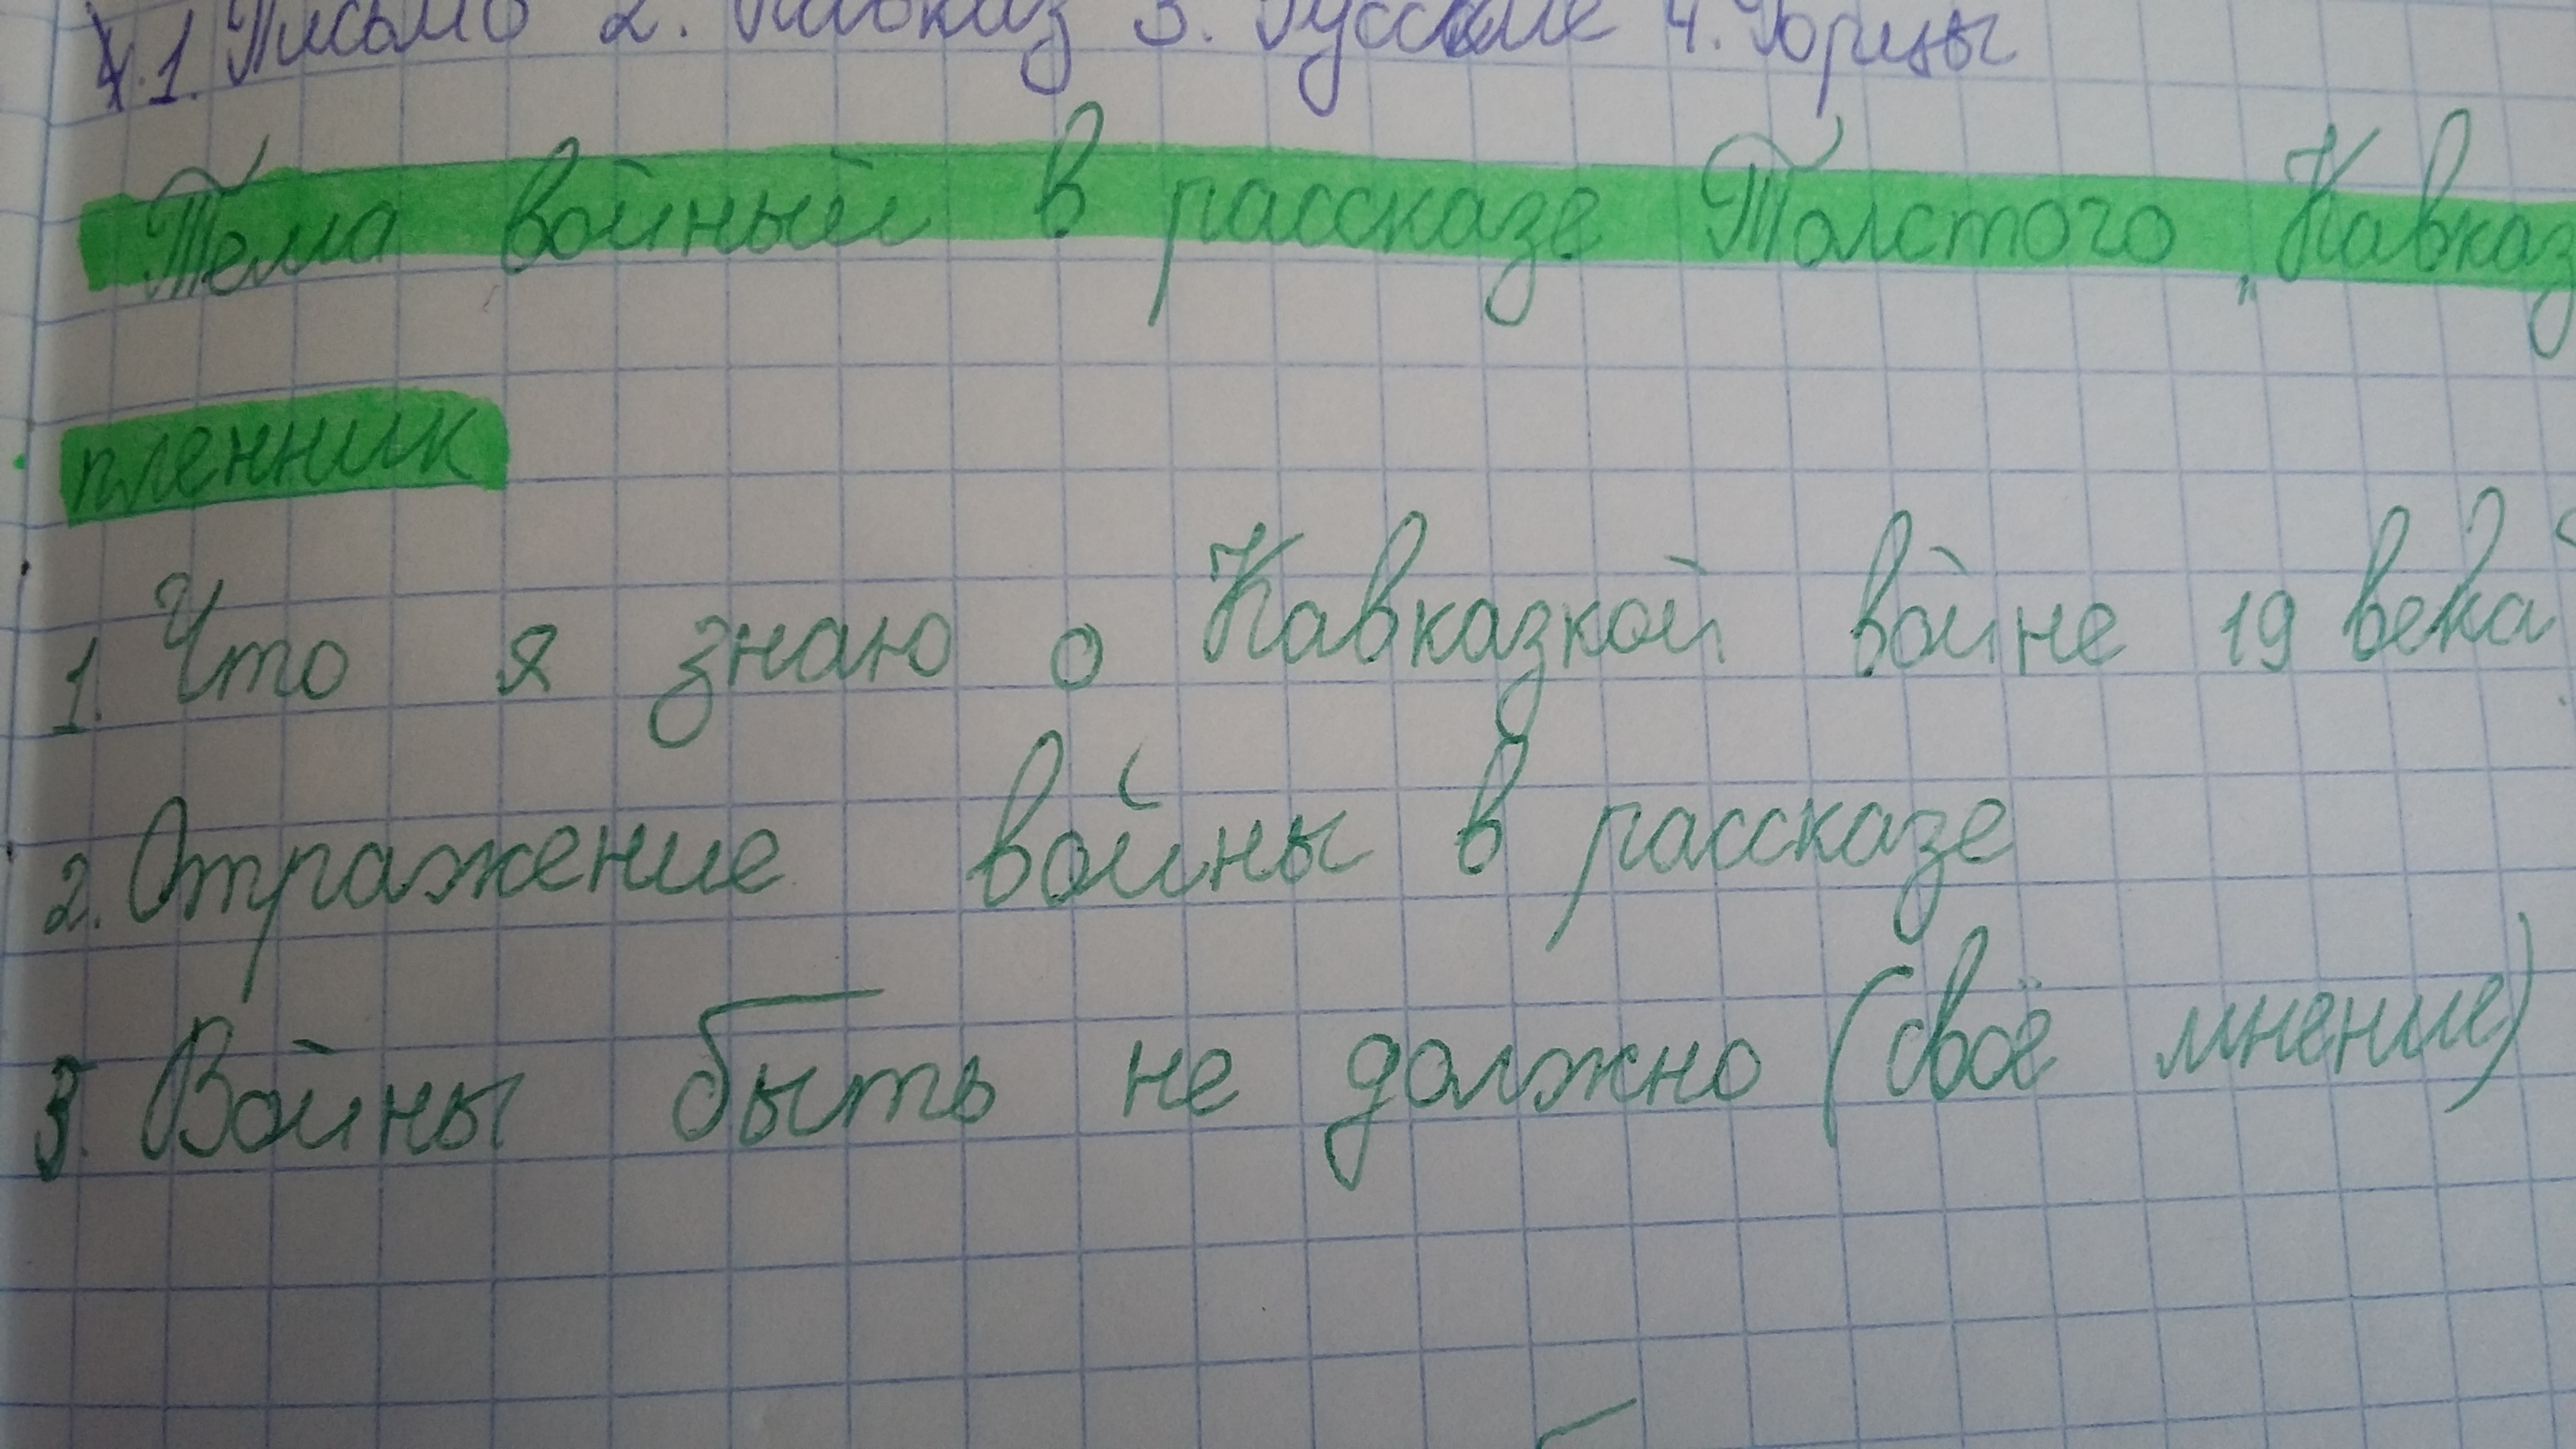 1. Письмо 2. Кавказ 3. Русские 4. Горцы
Тема войный в рассказе Толстого „Кавказ
пленник
1. Что я знаю о Кавказкой войне 19 века?
2. Отражение войны в рассказе
3. Войны быть не должно (своё мнение)